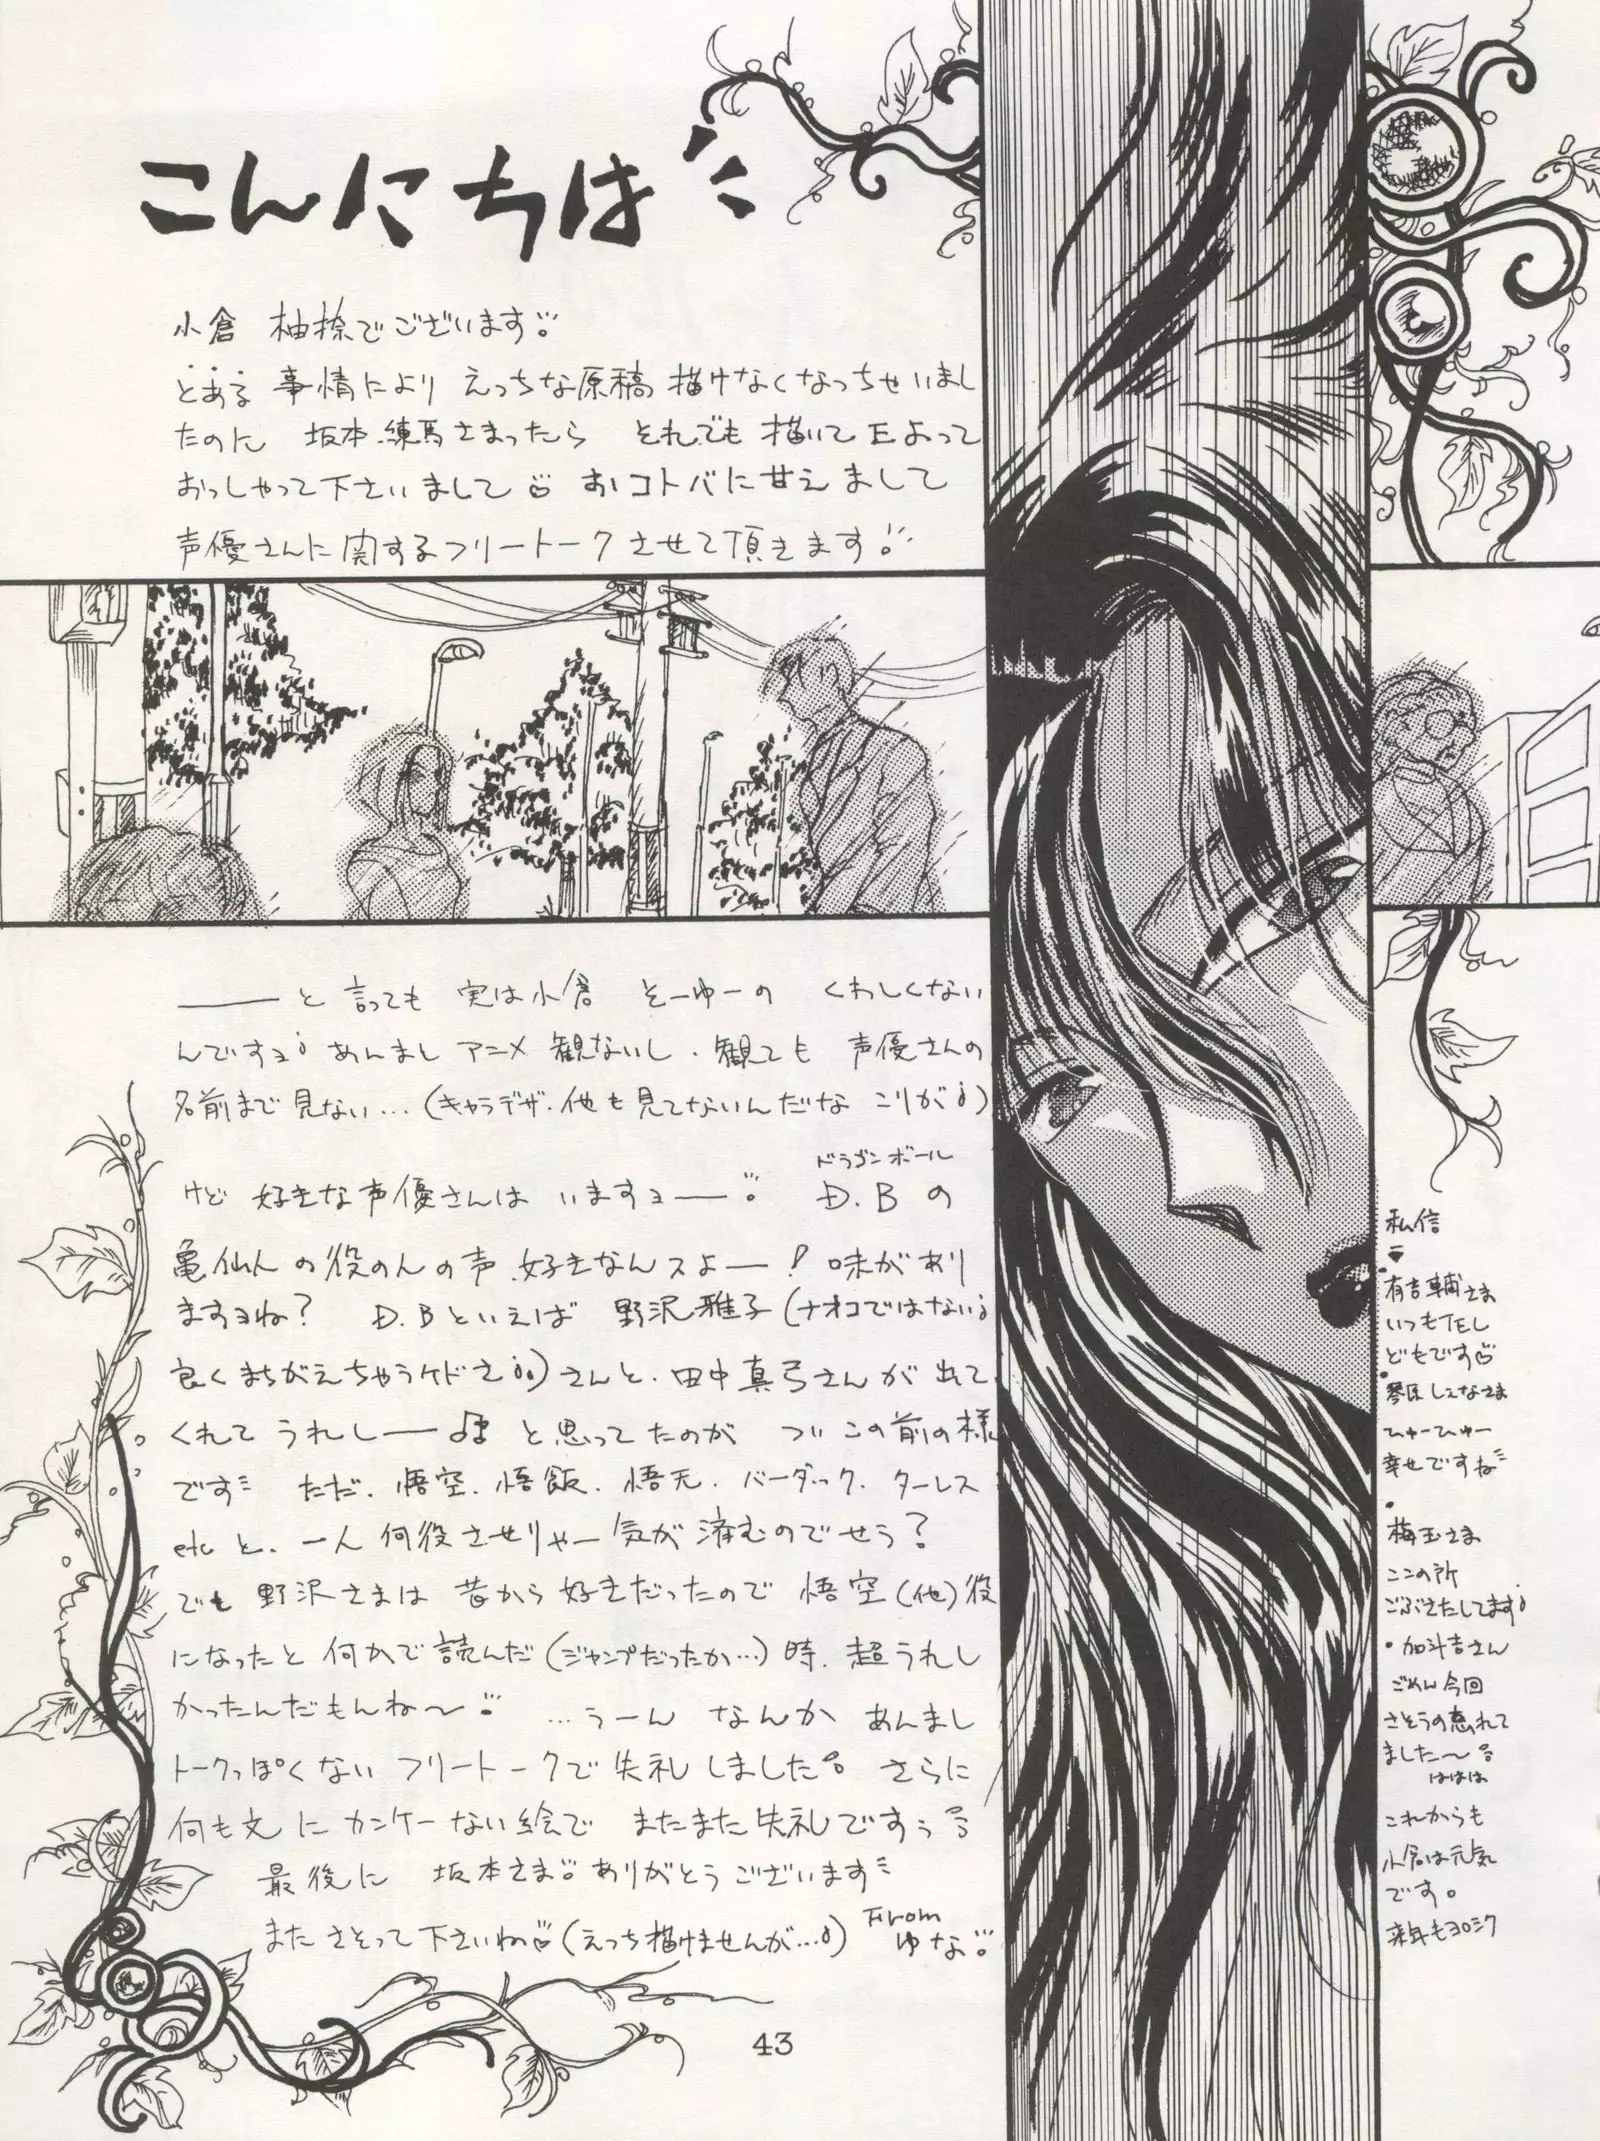 こんにちは
小倉 柚捺でございます。
とある 事情により えっちな原稿 描けなくなっちゃいまし
たのに 坂本.練馬さまったら それでも 描いて よって
おっしゃって下さいまして おコトバに甘えまして
声優さんに関するフリートークさせて頂きます。
――と 言っても 実は小倉 そーゆーの くわしくない
んですョ あんまし アニメ 観ないし、観ても 声優さんの
名前まで 見ない…(キャラデザ.他も見てないんだな こりが)
けど 好きな声優さんは いますョー。 D.Bの
ドラゴンボール
亀仙人の役の人の声、好きなんスよー! 味があり
ますョね? D.Bといえば 野沢雅子(ナオコではない
良くまちがえちゃうケドさ)さんと、田中真弓さんが 出て
くれて うれしー♪ と思ってたのが つい この前の様
です ただ、悟空、悟飯、悟天、バーダック、ターレス
etc と、一人 何役させりゃー気が済むのでせう?
でも 野沢さまは 昔から 好きだったので 悟空(他)役
になったと 何かで読んだ(ジャンプだったか…)時、超うれし
かったんだもんね〜。 …うーん なんか あんまし
トークっぽくない フリートークで 失礼しました。 さらに
何も文 に カンケーない絵で またまた失礼ですぅ
最後に 坂本さま。ありがとうございます
また さそって 下さいね(えっち描けませんが…)
From ゆな。
私信
・有吉輔さま
いつもTEL
どもです
・琴原しえなさま
ひゅーひゅー
幸せですね
・梅玉さま
ここの所
ごぶさたしてます
・加斗吉さん
ごめん今回
さそうの忘れて
ました〜
ははは
これからも
小倉は元気
です。
来年もヨロシク
43